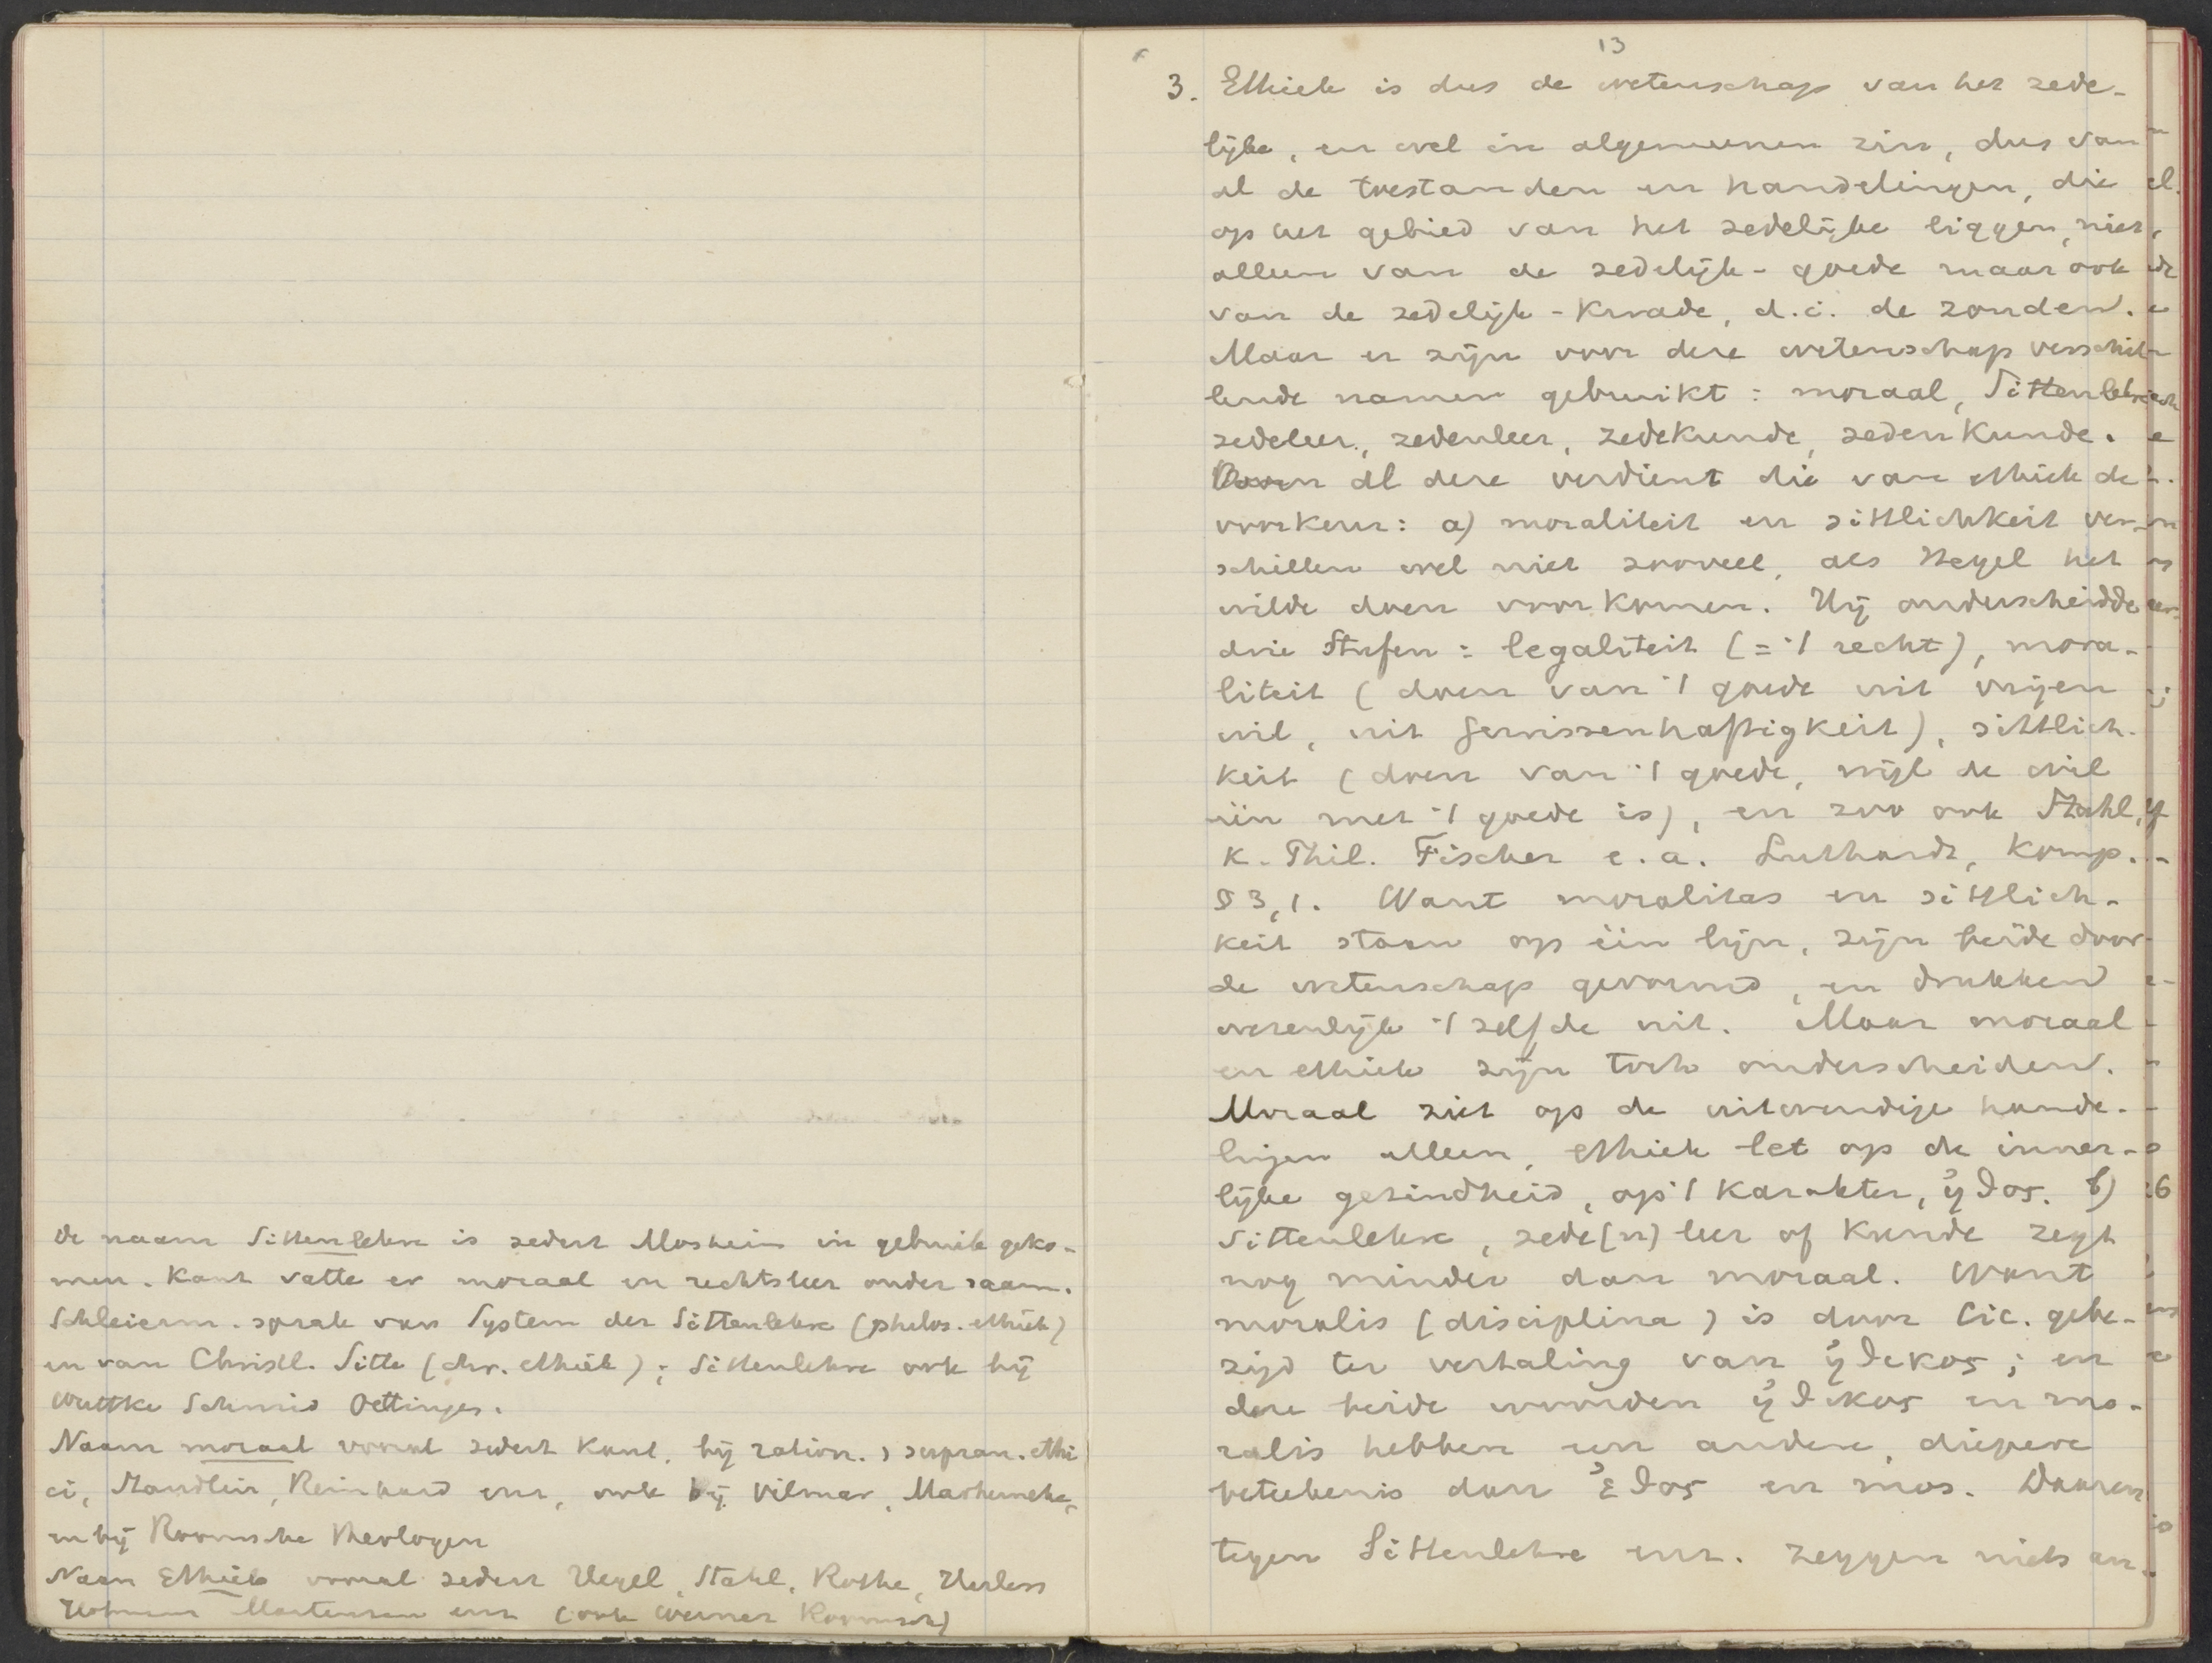 De naam Sittenlehre is sedert Mosheim in gebruik geko-
men. Kant vatte er moraal en rechtsleer onder saam.
Schleierm. sprak van System der Sittenlehre (philos. ethiek)
en van Christl. Sitte (chr. ethiek); Sittenlehre ook bij
Wuttke Schmid Oettinger.
Naam moraal vooral sedert Kant, bij ration. , supran. ethi
ci, Staudlin, Reinhard enz, ook bij Vilmar, Marheineke,
en bij Roomsche theologen
Naam Ethiek vooral sedert Hegel, Stahl, Rothe, Harless
Hofmann Martensen enz (ook Werner Roomsch)
13
3. Ethiek is dus de wetenschap van het zede-
lijke, en wel in algemeenen zin, dus van
al de toestanden en handelingen, die
op het gebied van het zedelijke liggen, niet
alleen van de zedelijk-goede maar ook
van de zedelijk-kwade, d.i. de zonden.
Maar er zijn voor deze wetenschap verschil-
lende namen gebruikt: moraal, Sittenlehre
zedeleer, zedenleer, zedekunde, zedenkunde.
Van al deze verdient die van ethiek de
voorkeur: a) moraliteit en sittlichkeit ver-
schillen wel niet zooveel, als Hegel het
wilde doen voorkomen. Hij onderscheidde
drie Stufen: legaliteit (= 't recht), mora-
liteit (doen van 't goede uit vrijen
wil, uit Gewissenhaftigkeit), sittlich-
keit (doen van 't goede, wijl de wil
één met 't goede is), en zoo ook Stahl,
K. Phil. Fischer e.a. Luthardt, Komp.
§ 3,1. Want moralitas en sittlich-
keit staan op één lijn, zijn beide door
de wetenschap gevormd, en drukken
wezenlijk 't zelfde uit. Maar moraal
en ethiek zijn toch onderscheiden.
Moraal ziet op de uitwendige hande-
lingen alleen, ethiek let op de inner-
lijke gezindheid, op 't karakter, ἠθος. b)
Sittenlehre, zede(n)leer of kunde zegt
nog minder dan moraal. Want
moralis (disciplina) is door Cic. gebe-
zigd ter vertaling van ἠθικος; en
deze beide woorden ἠθικος en mo-
ralis hebben een andere, diepere
beteekenis dan ἐθος en mos. Daaren
tegen Sittenlehre enz. zeggen niets an-